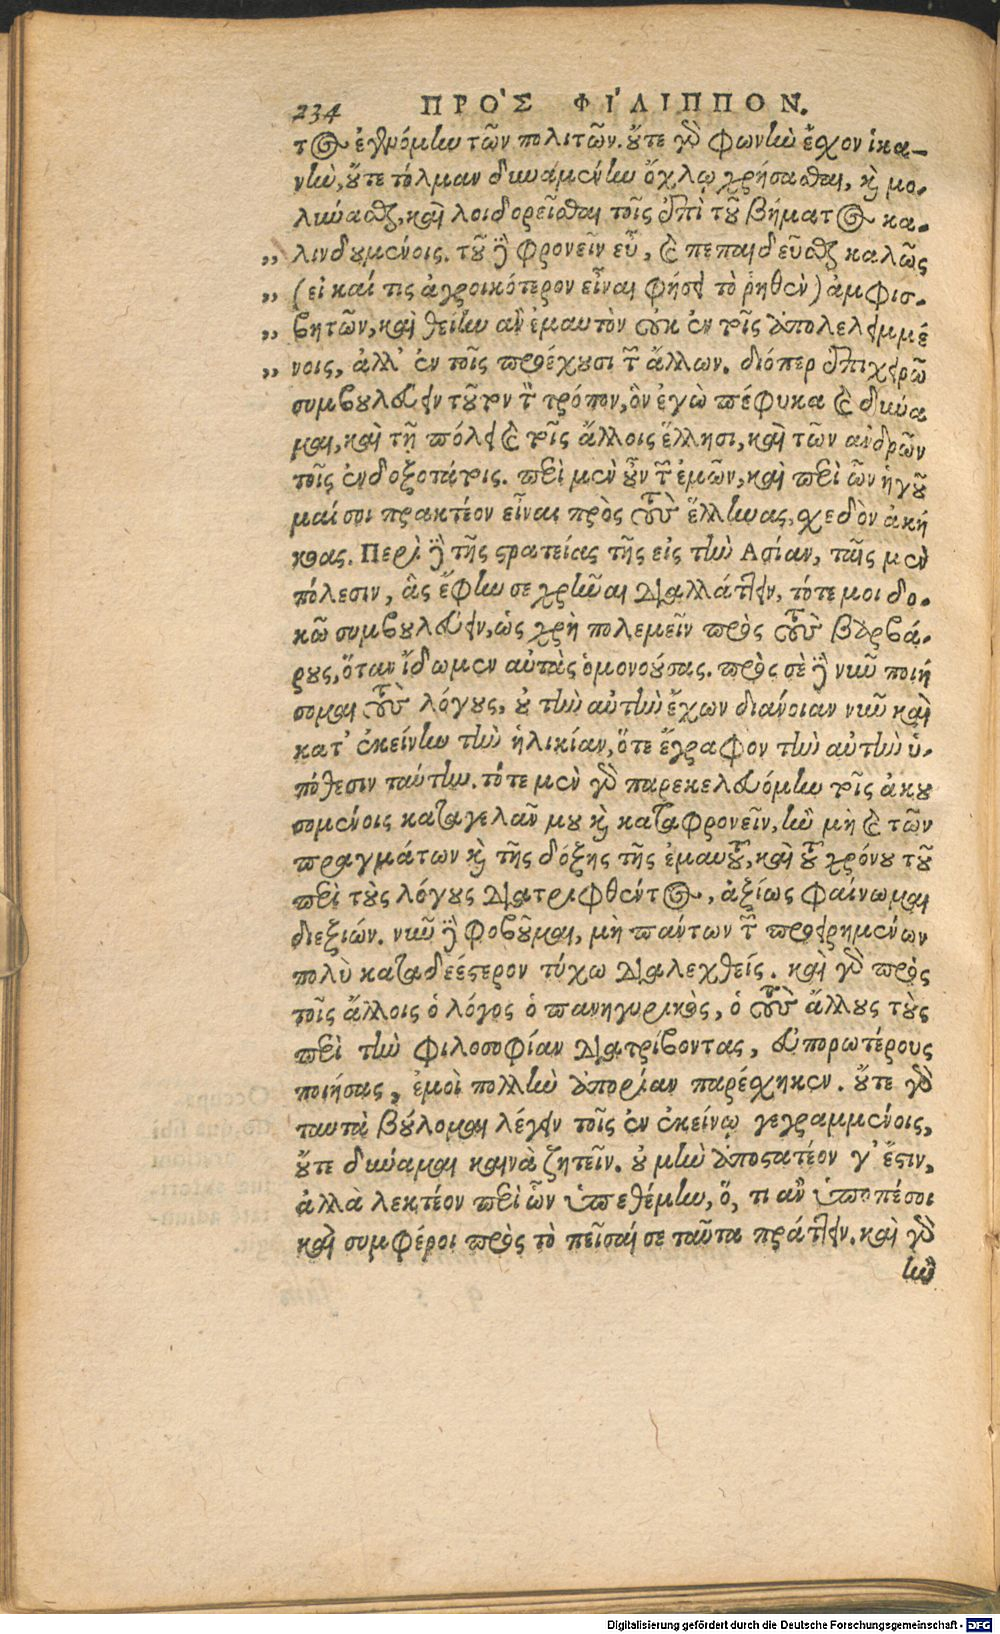 234 ΠΡΟ'Σ ΦΙ'ΛΙΠΠΟΝ.
τος ἐγενόμην τῶν πολιτῶν. ὔτε γὸ φωνὴν ἔχον ἱκα-
νὴν, ὔτε τόλμαν δυναμένην ὄχλῳ χρήσασθαι, κὶ μο-
λιύεσθαι, καὶ λοιδορεῖσθαι τοῖς ἐπὶ τῦ βήματος κα-
,, λινδυμένοις. τῦ δὲ φρονεῖν εὖ, καὶ πεπαιδεῦσθαι καλῶς
,, (εἰ καί τις ἀγροικότερον εἶναι φήσει τὸ ῥηθὲν) ἀμφισ-
,, βητῶν, καὶ θείην ἂν ἐμαυτὸν οὐκ ἐν τοῖς ἀπολελειμμέ
,, νοις, ἀλλ' ἐν τοῖς προέχυσι τῶν ἄλλων. διόπερ ἐπιχειρῶ
συμβυλεύειν τῦτον τὸν τρόπον, ὃν ἐγὼ πέφυκα καὶ δύνα
μαι, καὶ τῇ πόλει καὶ τοῖς ἄλλοις ἕλλησι, καὶ τῶν ἀνδρῶν
τοῖς ἐνδοξοτάτοις. περὶ μὲν ὖν τῶν ἐμῶν, καὶ περὶ ὧν ἡγῦ
μαί σοι πρακτέον εἶναι πρὸς τοὺς ἕλληνας, σχεδὸν ἀκή
κοας. Περὶ δὲ τῆς στρατείας τῆς εἰς τὴν Ασίαν, ταῖς μὲν
πόλεσιν, ἃς ἔφην σε χρῆναι διαλλάττειν, τότε μοι δο-
κῶ συμβυλεύειν, ὡς χρὴ πολεμεῖν πρὸς τοὺς βαρβά-
ρυς, ὅταν ἴδωμεν αὐτὰς ὁμονούσας. πρὸς σὲ δὲ νῦν ποιή
σομαι τοὺς λόγυς, ὐ τὴν αὐτὴν ἔχων διάνοιαν νῦν καὶ
κατ' ἐκείνην τὴν ἡλικίαν, ὅτε ἔγραφον τὴν αὐτὴν ὑ-
πόθεσιν ταύτην. τότε μὲν γὸ παρεκελευόμην τοῖς ἀκυ
σομένοις καταγελᾶν μυ κὶ καταφρονεῖν, ἢν μὴ καὶ τῶν
πραγμάτων κὶ τῆς δόξης τῆς ἐμαυτοῦ, καὶ τοῦ χρόνυ τῦ
περὶ τὺς λόγυς διατριφθέντος, ἀξίως φαίνωμαι
διεξιών. νῦν δὲ φοβῦμαι, μὴ πάντων τῶν προειρημένων
πολὺ καταδεέστερον τύχω διαλεχθείς. καὶ γὸ πρὸς
τοῖς ἄλλοις ὁ λόγος ὁ πανηγυρικὸς, ὁ τοὺς ἄλλυς τὺς
περὶ τὴν φιλοσοφίαν διατρίβοντας, εὐπορωτέρους
ποιήσας, ἐμοὶ πολλὴν ἀπορίαν παρέσχηκεν. ὔτε γὸ
ταυτὰ βύλομαι λέγειν τοῖς ἐν ἐκείνῳ γεγραμμένοις,
ὔτε δύναμαι καινὰ ζητεῖν. ὐ μὴν ἀποστατέον γ' ἔστιν,
ἀλλὰ λεκτέον περὶ ὧν ὑπεθέμην, ὅ, τι ἂν ὑποπέσοι
καὶ συμφέροι πρὸς τὸ πεῖσαί σε ταῦτα πράττειν. καὶ γὸ
ἢν
Digitalisierung gefördert durch die Deutsche Forschungsgemeinschaft - DFG